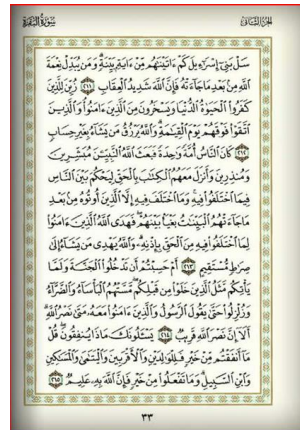 الجزء الثاني
سورة البقرة
سَلْ بَنِىٓ إِسْرَٰٓءِيلَ كَمْ ءَاتَيْنَٰهُم مِّنْ ءَايَةٍۭ بَيِّنَةٍ ۗ وَمَن يُبَدِّلْ نِعْمَةَ
ٱللَّهِ مِنۢ بَعْدِ مَا جَآءَتْهُ فَإِنَّ ٱللَّهَ شَدِيدُ ٱلْعِقَابِ ٢١١ زُيِّنَ لِلَّذِينَ
كَفَرُوا۟ ٱلْحَيَوٰةُ ٱلدُّنْيَا وَيَسْخَرُونَ مِنَ ٱلَّذِينَ ءَامَنُوا۟ ۘ وَٱلَّذِينَ
ٱتَّقَوْا۟ فَوْقَهُمْ يَوْمَ ٱلْقِيَٰمَةِ ۗ وَٱللَّهُ يَرْزُقُ مَن يَشَآءُ بِغَيْرِ حِسَابٍ
٢١٢ كَانَ ٱلنَّاسُ أُمَّةً وَٰحِدَةً فَبَعَثَ ٱللَّهُ ٱلنَّبِيِّـۧنَ مُبَشِّرِينَ
وَمُنذِرِينَ وَأَنزَلَ مَعَهُمُ ٱلْكِتَٰبَ بِٱلْحَقِّ لِيَحْكُمَ بَيْنَ ٱلنَّاسِ
فِيمَا ٱخْتَلَفُوا۟ فِيهِ ۚ وَمَا ٱخْتَلَفَ فِيهِ إِلَّا ٱلَّذِينَ أُوتُوهُ مِنۢ بَعْدِ
مَا جَآءَتْهُمُ ٱلْبَيِّنَٰتُ بَغْيًۢا بَيْنَهُمْ ۖ فَهَدَى ٱللَّهُ ٱلَّذِينَ ءَامَنُوا۟
لِمَا ٱخْتَلَفُوا۟ فِيهِ مِنَ ٱلْحَقِّ بِإِذْنِهِۦ ۗ وَٱللَّهُ يَهْدِى مَن يَشَآءُ إِلَىٰ
صِرَٰطٍ مُّسْتَقِيمٍ ٢١٣ أَمْ حَسِبْتُمْ أَن تَدْخُلُوا۟ ٱلْجَنَّةَ وَلَمَّا
يَأْتِكُم مَّثَلُ ٱلَّذِينَ خَلَوْا۟ مِن قَبْلِكُم ۖ مَّسَّتْهُمُ ٱلْبَأْسَآءُ وَٱلضَّرَّآءُ
وَزُلْزِلُوا۟ حَتَّىٰ يَقُولَ ٱلرَّسُولُ وَٱلَّذِينَ ءَامَنُوا۟ مَعَهُۥ مَتَىٰ نَصْرُ ٱللَّهِ ۗ
أَلَآ إِنَّ نَصْرَ ٱللَّهِ قَرِيبٌ ٢١٤ يَسْـَٔلُونَكَ مَاذَا يُنفِقُونَ ۖ قُلْ
مَآ أَنفَقْتُم مِّنْ خَيْرٍ فَلِلْوَٰلِدَيْنِ وَٱلْأَقْرَبِينَ وَٱلْيَتَٰمَىٰ وَٱلْمَسَٰكِينِ
وَٱبْنِ ٱلسَّبِيلِ ۗ وَمَا تَفْعَلُوا۟ مِنْ خَيْرٍ فَإِنَّ ٱللَّهَ بِهِۦ عَلِيمٌ ٢١٥
٣٣